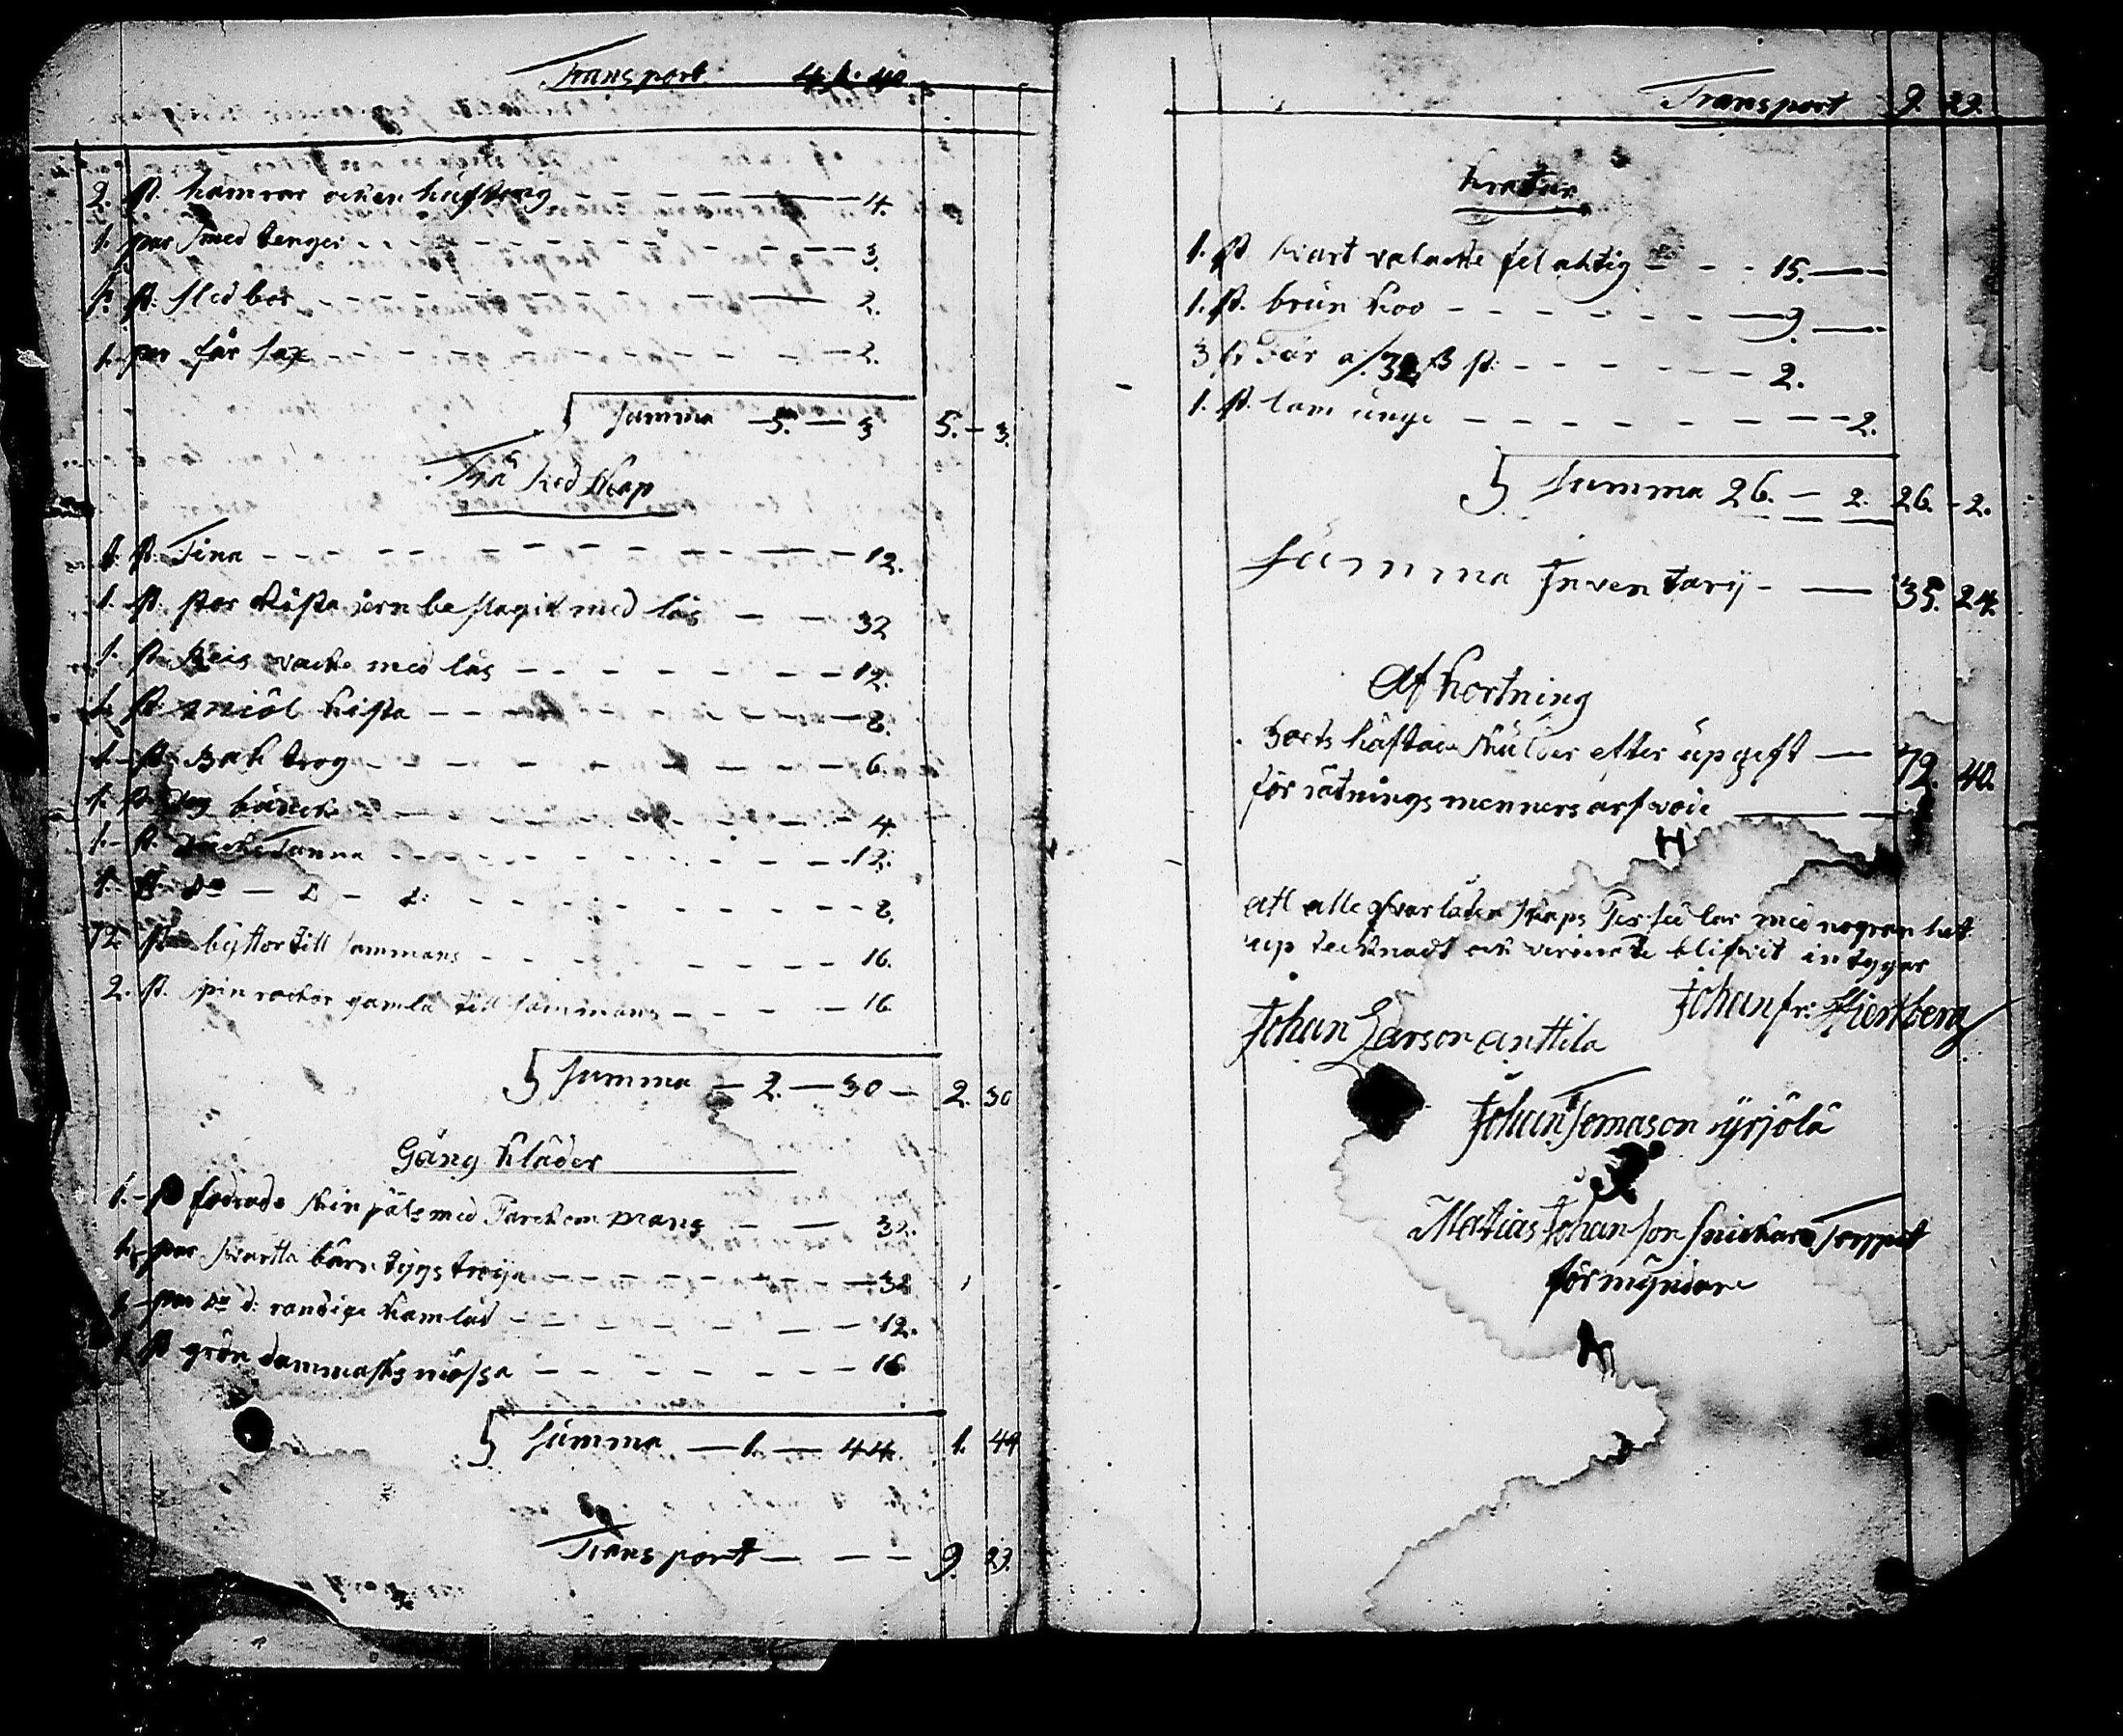 Transport 4. 1. 40
2. st. hamrar ock en hufttong - - - 4.
1. par smed tenger - - - 3.
1. st. sledbor - - - 2.
1. par får sax - - - 2.
Summa 5. - 3 5. - 3.
Trä Red Skap
1. st. Tina - - - 12.
1. st. stor kista jern beslagit med lås - - 32
1. st. Reis vacka med lås - - - 12.
1. st. miöl kista - - - 8.
1. st. Bak trog - - - 6.
1. st. Deg bünck - - - 4
1. st. Tanna - - - 12.
1. st. Do - D - d: - - - 8.
12. st. byttor till sammans - - - 16.
2. st. spin rockar gamla till sammans - - - 16
Summa - 2. - 30 - 2. 30
Gång Kläder
1. st fodrade skin päls med krans - - 32.
1. par svartta barn tygs tröija - - - 32
1. par Do d: randige kamlåd - - - 12.
1. st grön dammasks mössa - - - 16
Summa - 1. - 44. 1. 44
Transport - - - 9. 29.
Transport 9. 29.
Kratur
1. st. svart valacke felaktig - - - 15. -
1. st. brun koo - - - 9. -
3 st Får a/. 32 ß st: - - - 2.
1. st. lam unge - - - 2.
Summa 26. - 2. 26. - 2.
Summa Inventarij - - 35. 24.
Af kortning
Borts häftade skulder efter üpgift - 72. 40.
för rätnings menners arfvode - -
H
att alle qvarlåtenskaps Persedlar med nogranhet
up tecknadt ock verderade blifvit intygar
Johan fr: Hjertberg
Johan Larson anttila
Johan Tomason yrjölä
Matias Johanson snickars Torppet
förmyndare